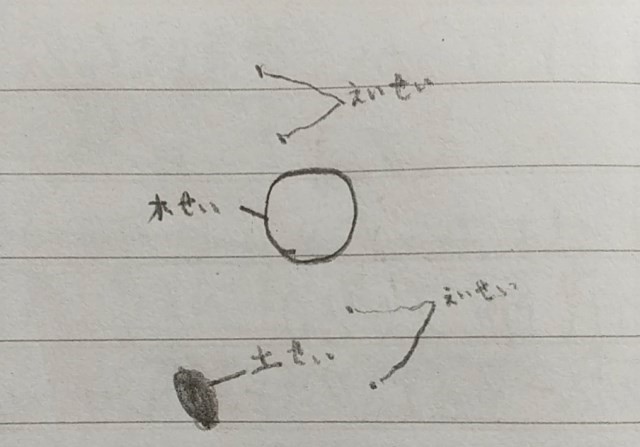 えいせい
木せい
えいせい
土せい